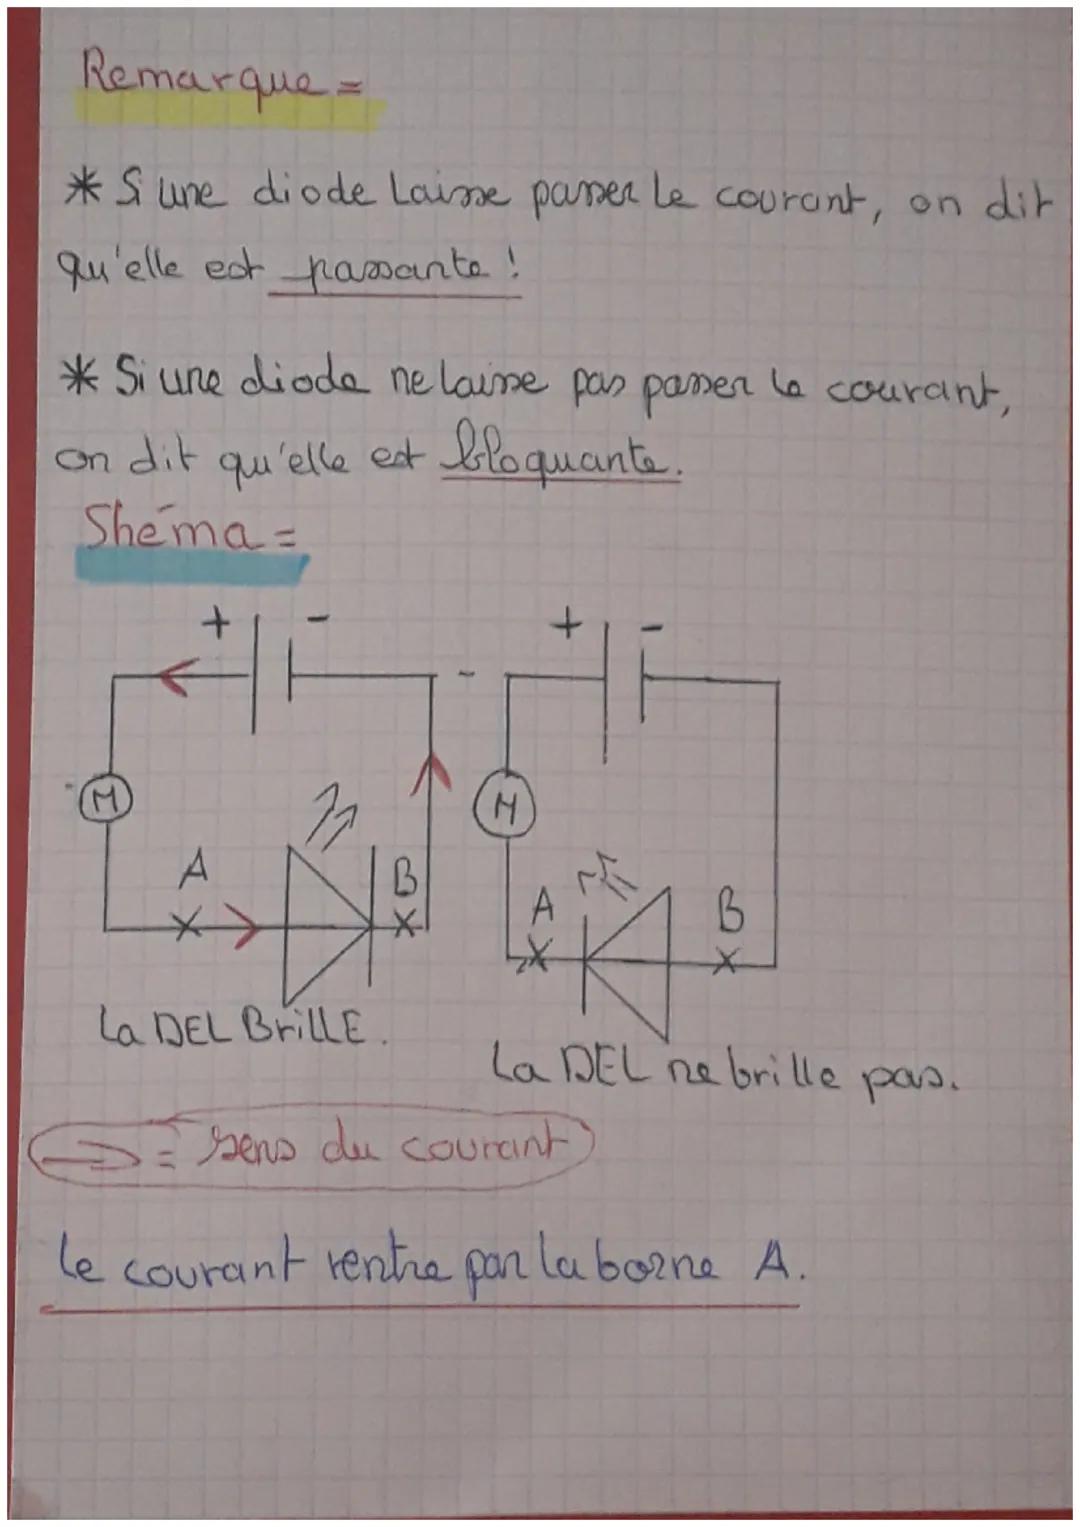 Remarque =
* Si une diode laisse passer le courant, on dit
qu'elle est passante !
* Si une diode ne laisse pas passer le courant,
on dit qu'elle est bloquante.
Shéma =
+ - - + -
M M
A B A B
La DEL Brille.
La DEL ne brille pas.
= sens du courant
le courant rentre par la borne A.